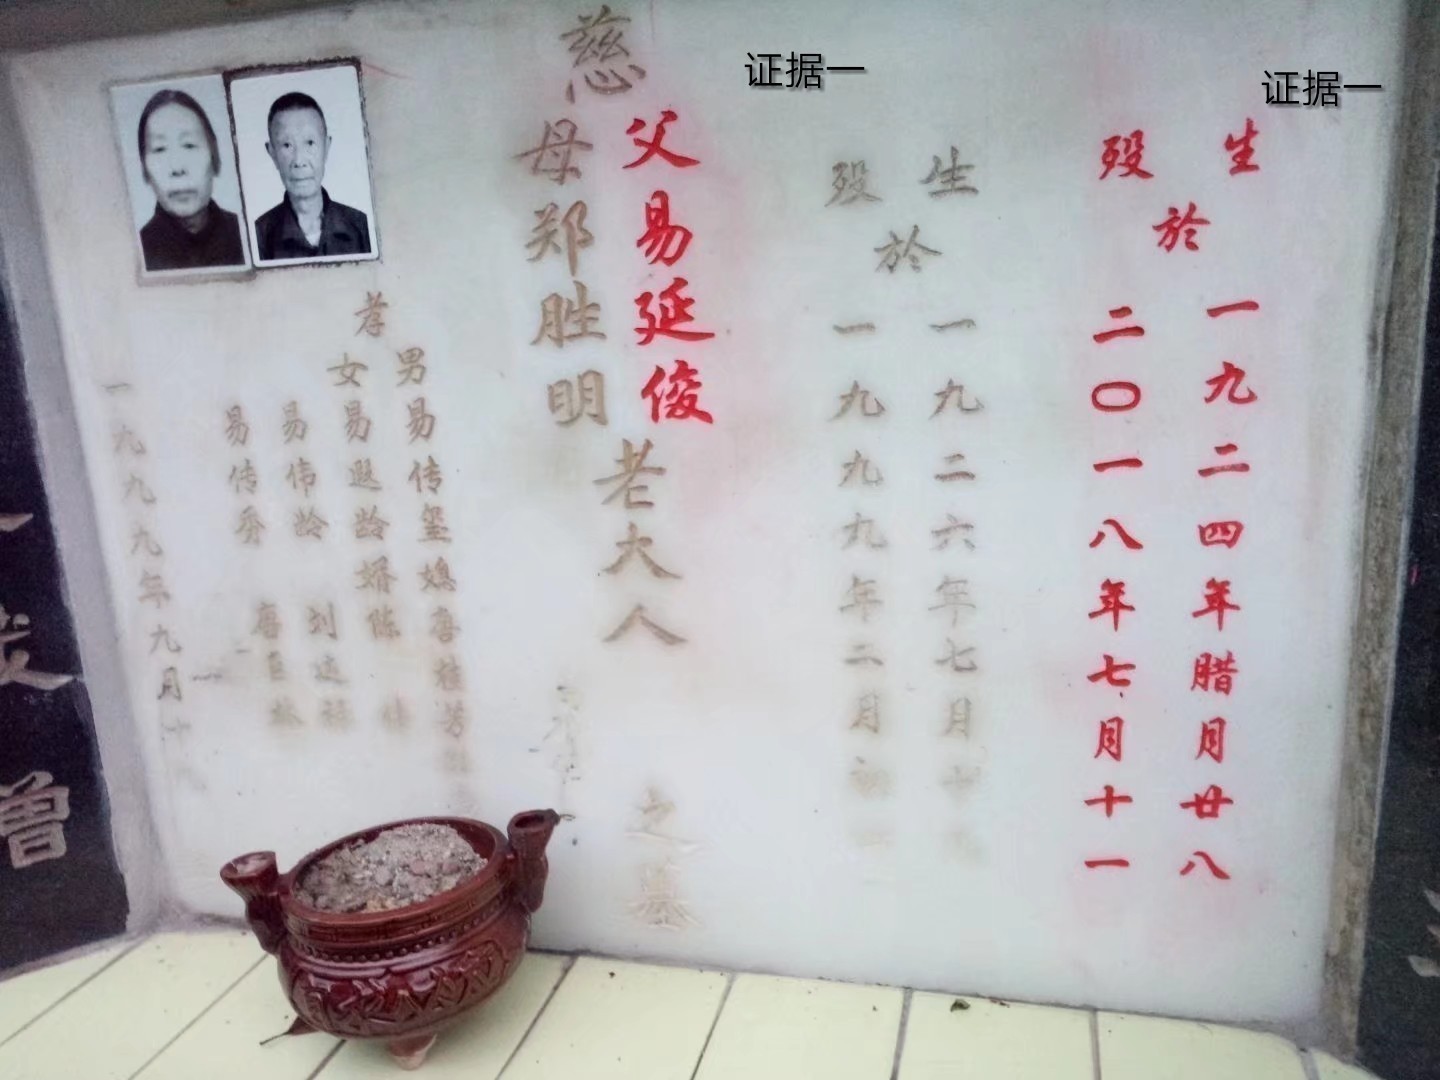 证据一
证据一
生 殁
於
一九二四年腊月廿八
二〇一八年七月十一
生 殁
於
一九二六年七月十
一九九九年二月初
父易延俊
慈母郑胜明
老大人
之墓
孝
男易传玺媳唐桂芳
女易遐龄婿陈
易伟龄 刘达祥
易传秀 唐巨林
一九九九年九月十
曾